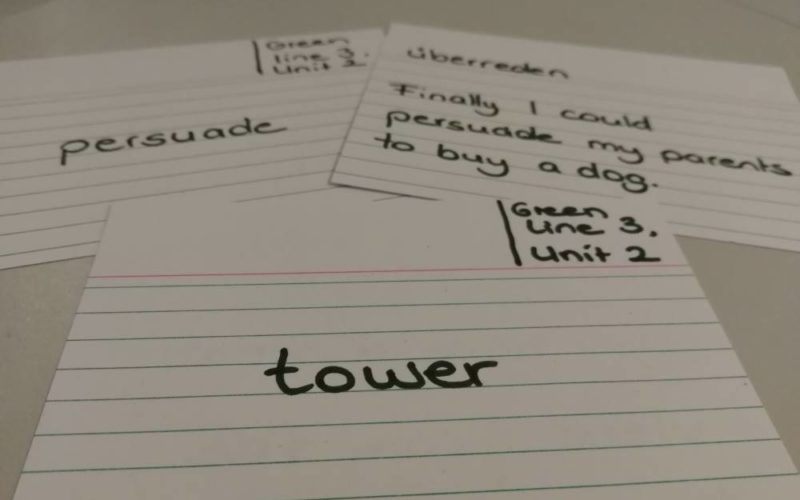 Green
line 3,
Unit 2
persuade
überreden
Finally I could
persuade my parents
to buy a dog.
Green
Line 3,
Unit 2
tower